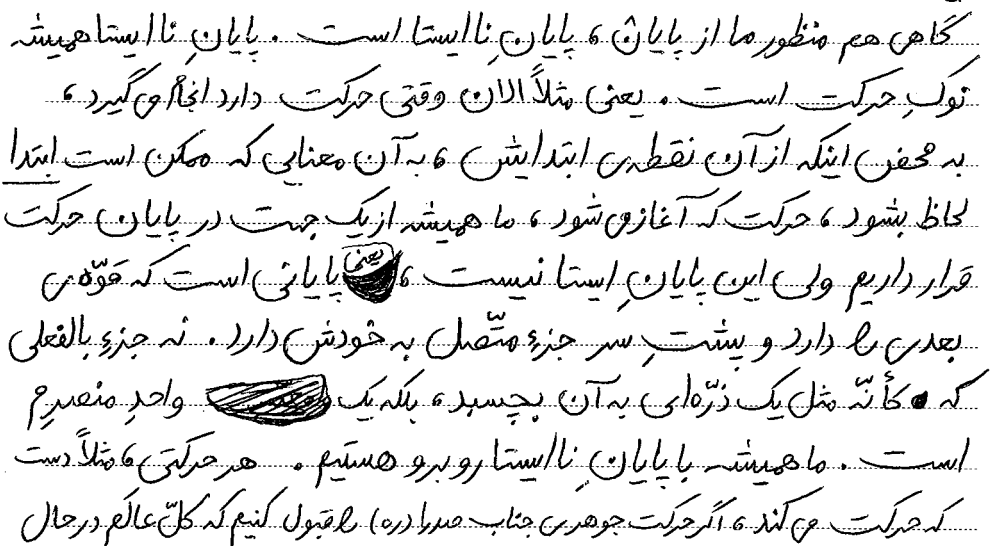 گاهی هم منظور ما از پایان، پایانِ ناایستا است. پایانِ ناایستا همیشه
نوکِ حرکت است. یعنی مثلاً الان وقتی حرکت دارد انجام می‌گیرد،
به محض اینکه از آن نقطه‌ی ابتدایش، به آن معنایی که ممکن است ابتدا
لحاظ بشود، حرکت که آغاز می‌شود، ما همیشه از یک جهت در پایان حرکت
قرار داریم ولی این پایانِ ایستا نیست، یعنی پایانی است که قوّه‌ی
بعدی را دارد و پشتِ سر جزءِ متّصل به خودش دارد. نه جزءِ بالفعلی
که کأنّه مثل یک ذرّه‌ای به آن بچسبد، بلکه یک واحدِ منصرِم
است. ما همیشه با پایانِ ناایستا روبرو هستیم. هر حرکتی، مثلاً دست
که حرکت می‌کند، اگر حرکت جوهری جناب صدرا (ره) را قبول کنیم که کلّ عالَم در حال